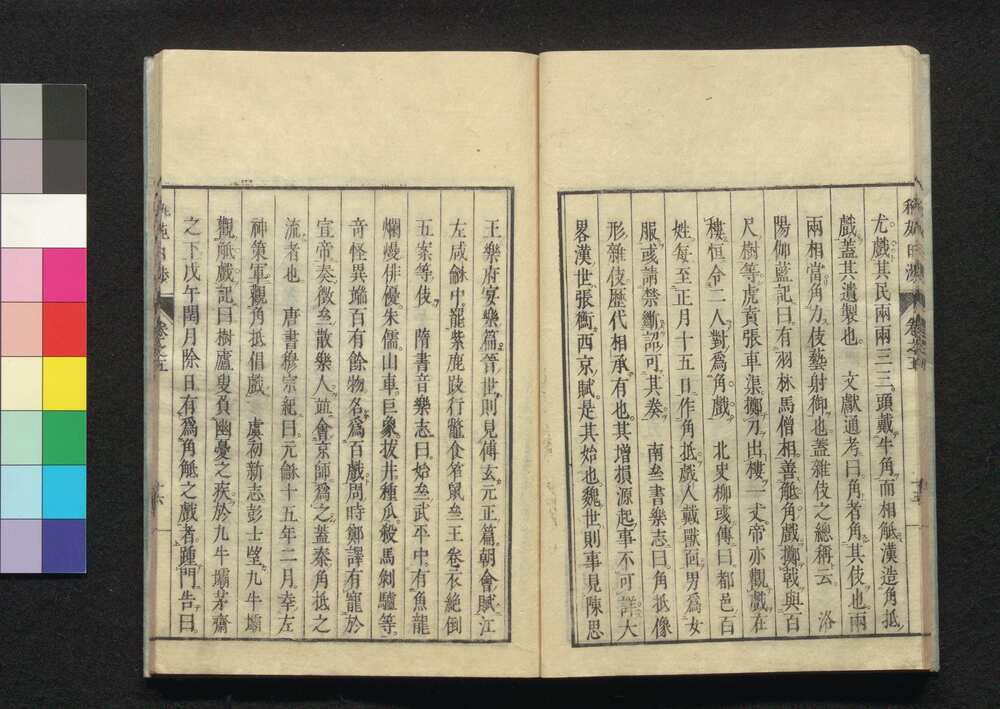 尤戲其民兩兩三三頭戴牛角而相觝漢造角抵
戲蓋其遺製也　文獻通考曰角者角其伎也兩
兩相當角力伎藝射御也蓋雜伎之總稱云　洛
陽伽藍記曰有羽林馬僧相善觝角戲擲戟與百
尺樹等虎賁張車渠擲刀出樓一丈帝亦觀戲在
樓恒令二人對爲角戲　北史柳彧傳曰都邑百
姓每至正月十五日作角抵戲人戴獸面男爲女
服彧請禁斷詔可其奏　南𠫭書樂志曰角抵像
形雜伎歷代相承有也其增損源起事不可詳大
畧漢世張衡西京賦是其始也魏世則事見陳思
卷之五
十五
王樂府宴樂篇晉世則見傅玄元正篇朝會賦江
左咸龢中龍紫鹿跂行鼈食笮鼠𠫭王卷衣絕倒
五案等伎　隋書音樂志曰始𠫭武平中有魚龍
爛熳俳優朱儒山車巨象拔井種瓜殺馬剝驢等
奇怪異端百有餘物名爲百戲周時鄭譯有寵於
宣帝奏徵𠫭散樂人竝會京師爲之蓋秦角抵之
流者也　唐書穆宗紀曰元龢十五年二月幸左
神策軍觀角抵倡戲　虞初新志彭士望九牛壩
觀觝戲記曰樹廬叟負幽憂之疾於九牛壩茅齋
之下戊午閏月除日有爲角觝之戲者踵門告曰
卷之五
十六